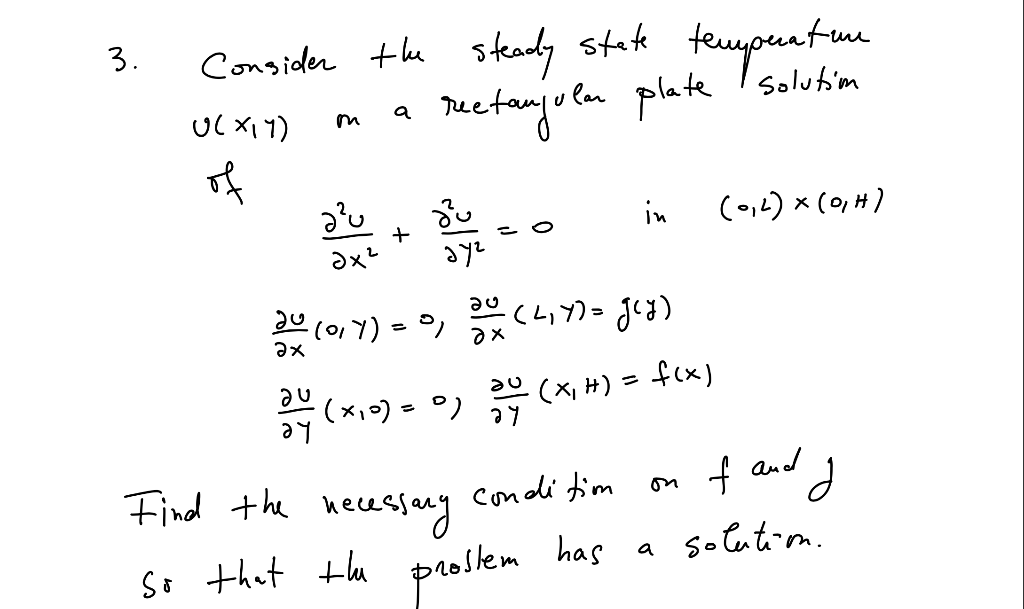 3. Consider the steady state temperature
U(x,y) on a rectangular plate solution
of
∂²U/∂x² + ∂²U/∂y² = 0 in (0,L) × (0,H)
∂U/∂x (0,y) = 0, ∂U/∂x (L,y) = g(y)
∂U/∂y (x,0) = 0, ∂U/∂y (x,H) = f(x)
Find the necessary condition on f and g
so that the problem has a solution.